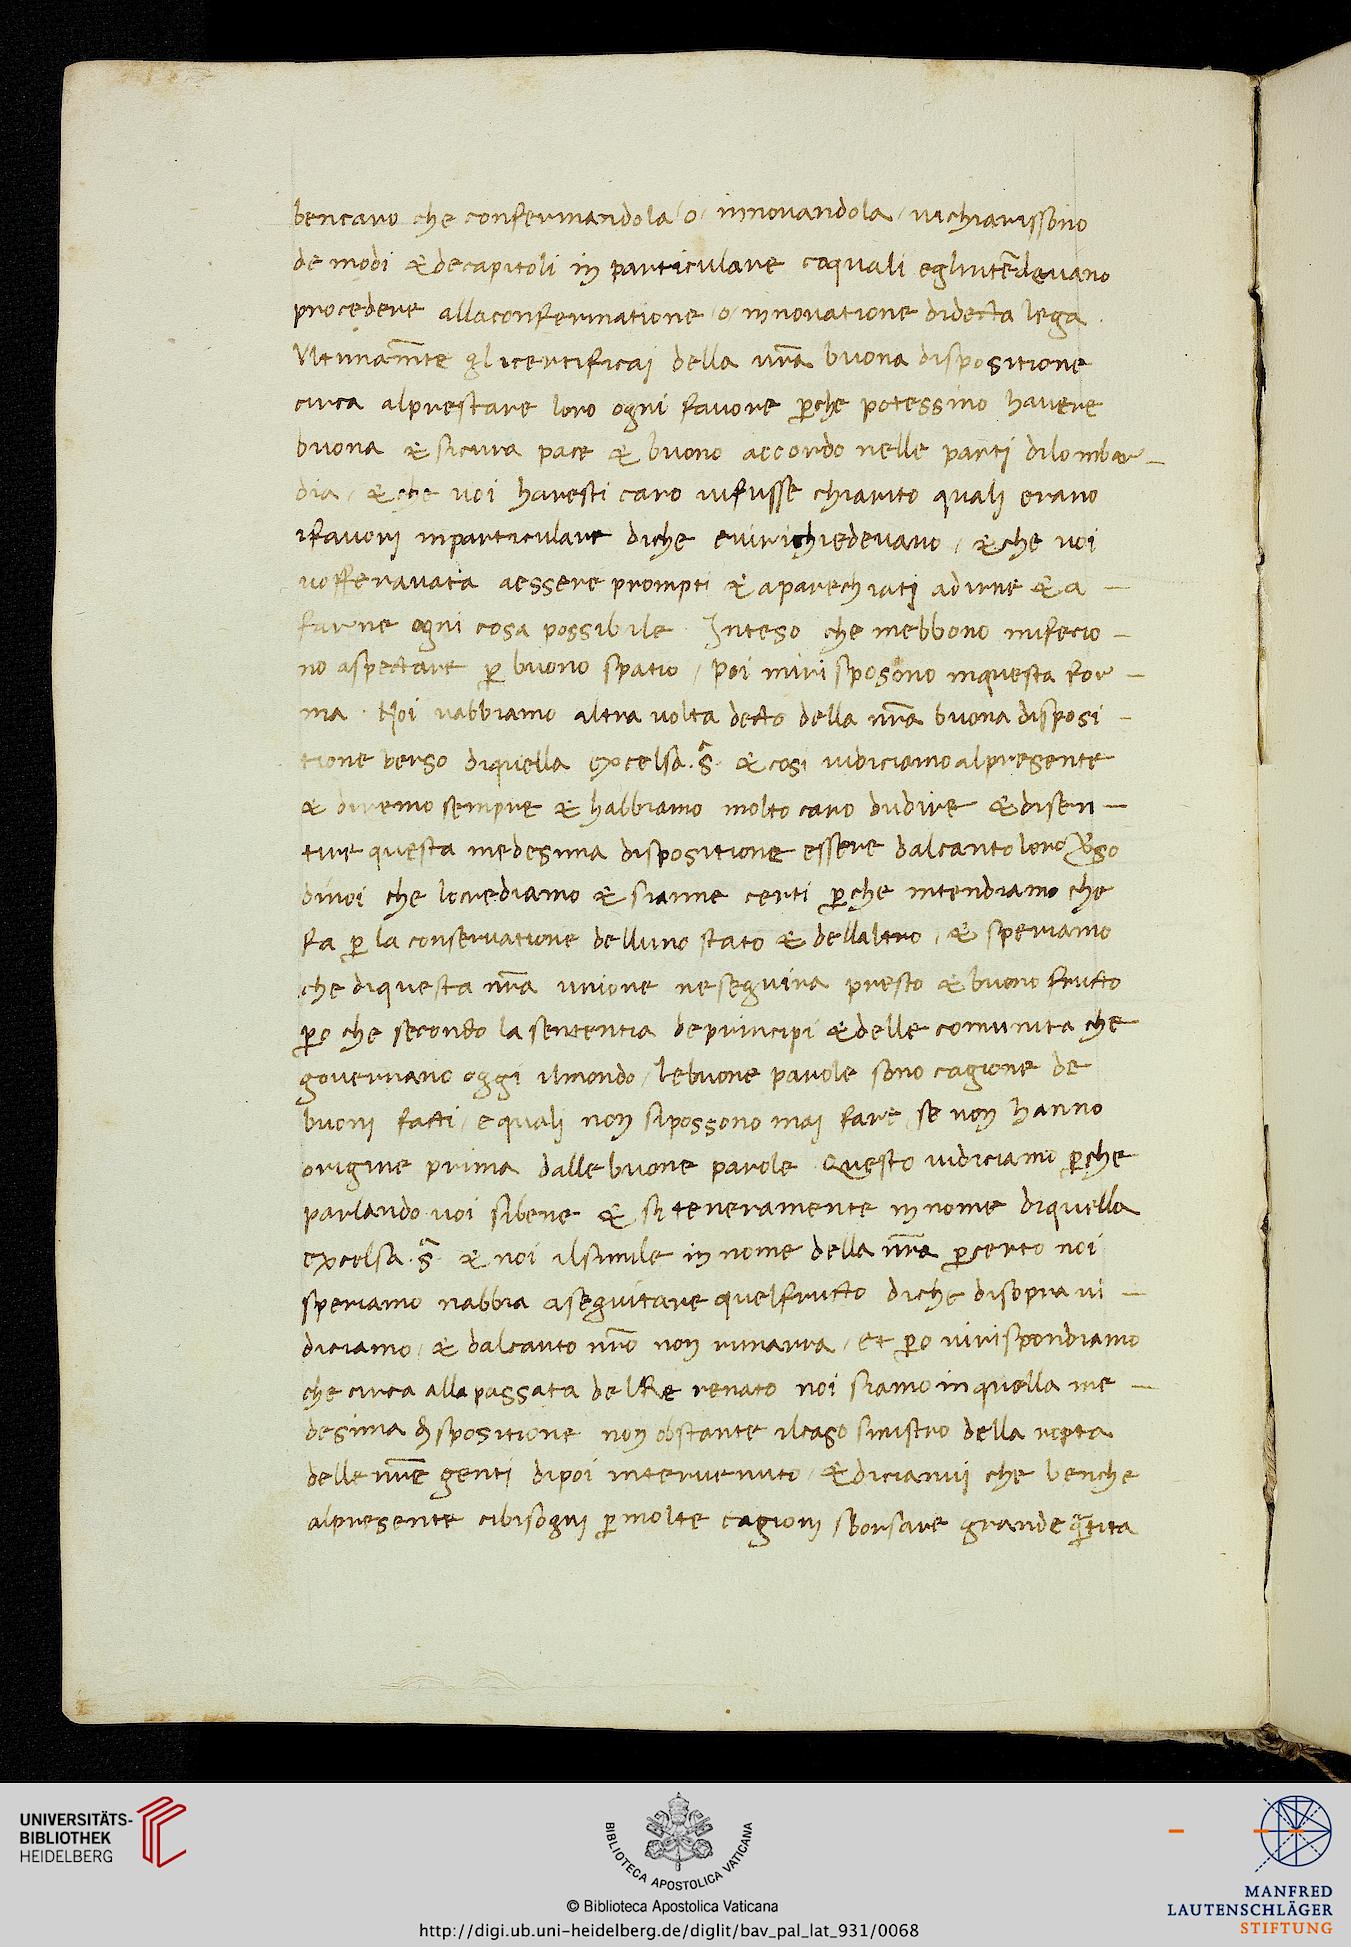 bencaro che confermandola / o / innovandola / vichiarissono
de modi & decapitoli in particulare coquali eglintēdevano
procedere allaconfermatione / o / innovatione didecta lega .
Ultimam̄te glicertificai della vr̄a buona dispositione
circa alprestare loro ogni favore ꝑche potessino havere
buona & sicura pace & buono accordo nelle parti dilombar –
dia / & che voi haresti caro vifusse chiarito quali erano
ifavori inparticulare diche evirichiedevano / & che voi
vofferavata aessere prompti & aparechiati adirne & a –
farne ogni cosa possibile . Inteso che mebbono mifecio –
no aspectare ꝑ buono spatio / poi mirisposono inquesta for –
ma . Noi vabbiamo altra volta decto della nr̄a buona disposi –
tione verso diquella excelsa . S̄ . & cosi vidiciamo alpresente
& diremo sempre & habbiamo molto caro dudire & disen –
tire questa medesima dispositione essere dalcantoloro v̄so
divoi che locrediamo & sianne certi ꝑche intendiamo che
fa ꝑ la conservatione delluno stato & dellaltro / & speriamo
che diquesta nr̄a unione neseguira presto & buono frutto
ꝑo che secondo la sententia deprincipi & delle comunita che
governano oggi ilmondo / lebuone parole sono cagione de
buoni facti / equali non sipossono mai fare se non hanno
origine prima dallebuone parole . Questo vidiciamo ꝑche
parlando voi sibene & si teneramente in nome diquella
excelsa . S̄ & noi ilsimile in nome della nr̄a ꝑcerto noi
speriamo nabbia aseguitare quelfructo diche disopra vi –
diciamo / & dalcanto nr̄o non rimarra / et ꝑo virispondiamo
che circa allapassata delRe renato noi siamo inquella me –
desima dispositione non obstante ilcaso sinistro della ropta
delle nr̄e genti dipoi intervenuto / & dicianvi che benche
alpresente cibisogni ꝑ molte cagioni sborsare grande quātita
UNIVERSITÄTS-
BIBLIOTHEK
HEIDELBERG
BIBLIOTECA APOSTOLICA VATICANA
© Biblioteca Apostolica Vaticana
http://digi.ub.uni-heidelberg.de/diglit/bav_pal_lat_931/0068
MANFRED
LAUTENSCHLÄGER
STIFTUNG